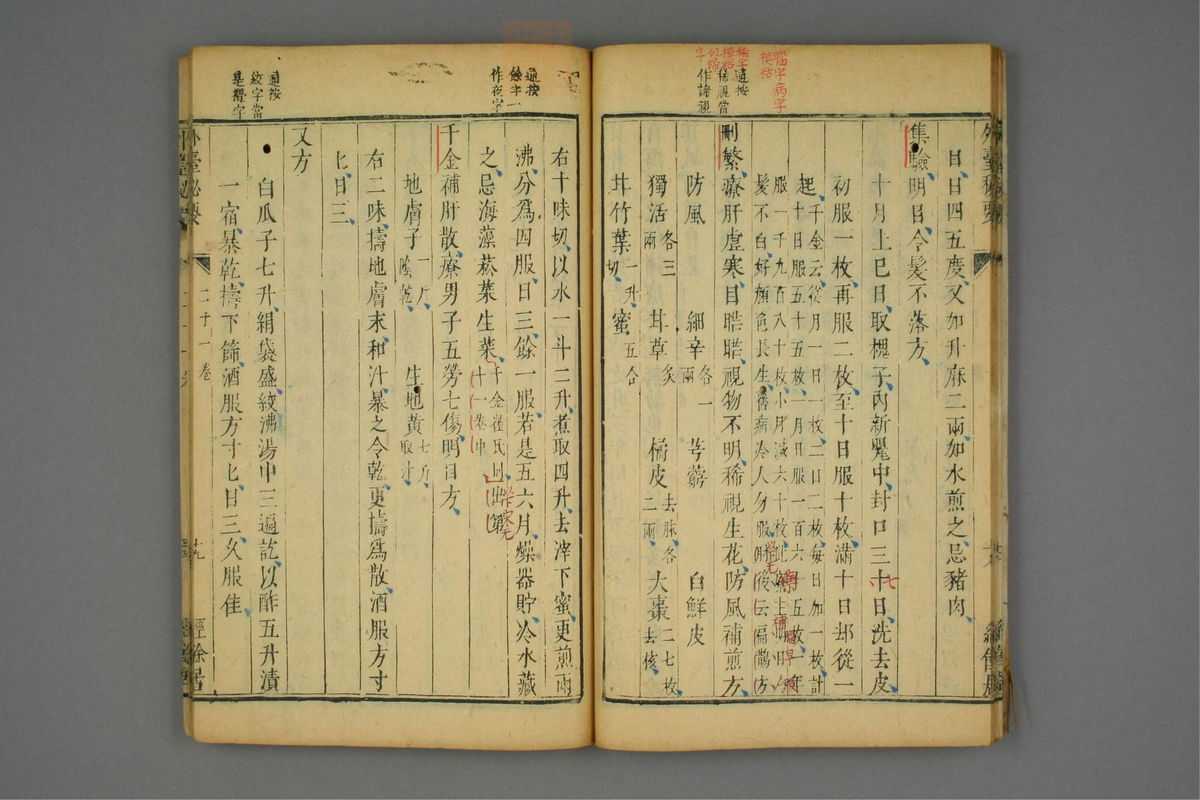 日日四五度又如升麻二兩如水煎之忌豬肉
集驗明目令髮不落方
十月上巳日取槐子內新甖中封口三十日洗去皮
初服一枚再服二枚至十日服十枚滿十日却從一
起千金云從月一日一枚二日二枚每日加一枚計
十日服五十五枚一月日服一百六十五枚一年
服一千九百八十枚小月減六十枚此藥主補腦早服
髮不白好顏色長生益病冷人勿服肘後云扁鵲方
刪繁療肝虛寒目䀮䀮視物不明稀視生花防風補煎方
防風 細辛各一兩 芎藭 白鮮皮
獨活各三兩 甘草炙 橘皮去脉各二兩 大棗二七枚去核
甘竹葉一升切 蜜五合
右十味切以水一斗二升煮取四升去滓下蜜更煎兩
沸分爲四服日三餘一服若是五六月燥器貯冷水藏
之忌海藻菘菜生菜千金崔氏同出第十一卷中
千金補肝散療男子五勞七傷明目方
地膚子一斤陰乾 生地黃七斤取汁
右二味擣地膚末和汁暴之令乾更擣爲散酒服方寸
匕日三
又方
白瓜子七升絹袋盛絞沸湯中三遍訖以酢五升漬
一宿暴乾擣下篩酒服方寸匕日三久服佳
腦字病字
模糊
稀字
模糊
通按
稀視當
作諦視
通按
餘字一
作夜字
通按
絞字當
是攪字
外臺秘要
二十一卷
十九
經餘居